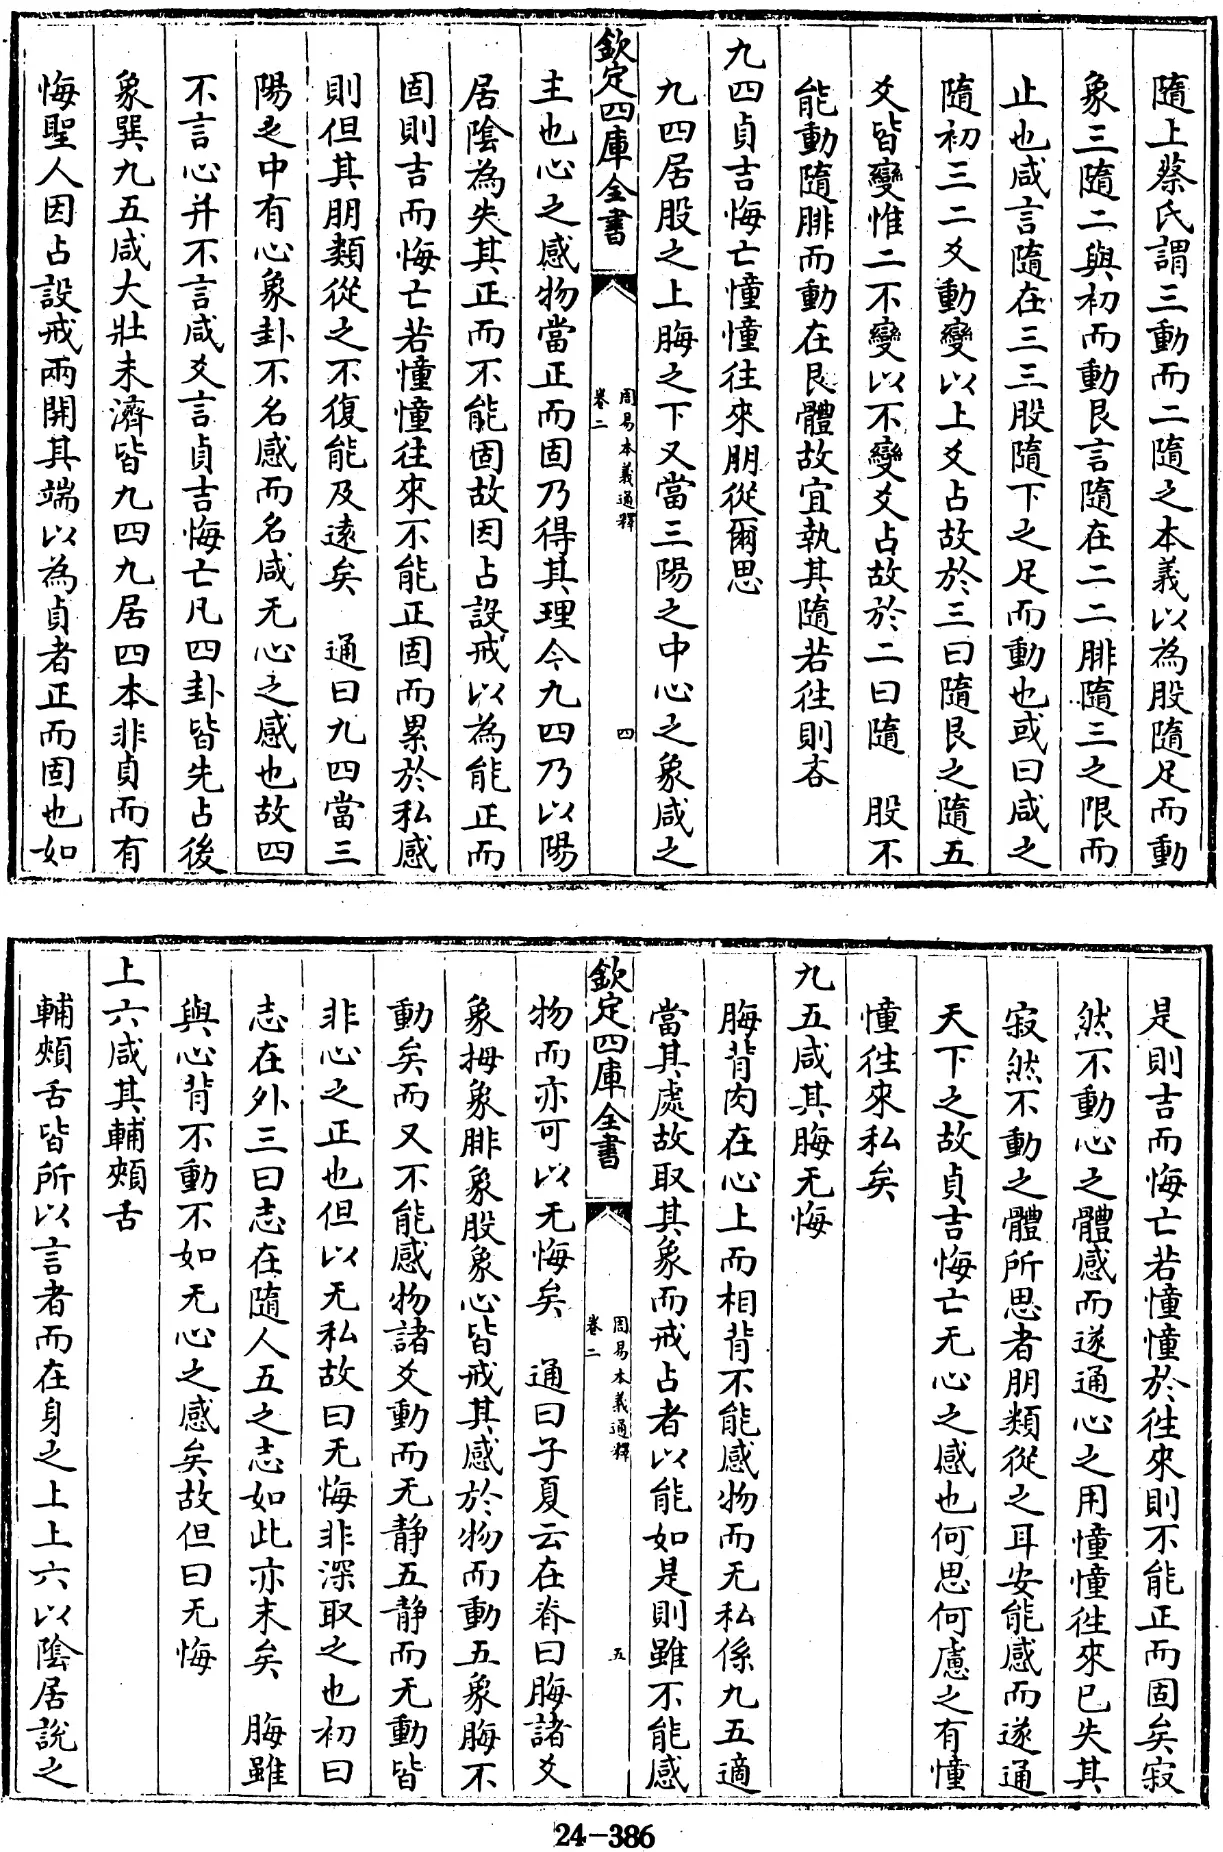 隨上蔡氏謂三動而二隨之本義以為股隨足而動
象三隨二與初而動艮言隨在二二腓隨三之限而
止也咸言隨在三三股隨下之足而動也或曰咸之
隨初三二爻動變以上爻占故於三曰隨艮之隨五
爻皆變惟二不變以不變爻占故於二曰隨　股不
能動隨腓而動在艮體故宜執其隨若往則吝
九四貞吉悔亡憧憧往來朋從爾思
九四居股之上脢之下又當三陽之中心之象咸之
欽定四庫全書
周易本義通釋
卷二
四
主也心之感物當正而固乃得其理今九四乃以陽
居陰為失其正而不能固故因占設戒以為能正而
固則吉而悔亡若憧憧往來不能正固而累於私感
則但其朋類從之不復能及遠矣　通曰九四當三
陽之中有心象卦不名感而名咸无心之感也故四
不言心并不言咸爻言貞吉悔亡凡四卦皆先占後
象巽九五咸大壯未濟皆九四九居四本非貞而有
悔聖人因占設戒兩開其端以為貞者正而固也如
是則吉而悔亡若憧憧於往來則不能正而固矣寂
然不動心之體感而遂通心之用憧憧往來已失其
寂然不動之體所思者朋類從之耳安能感而遂通
天下之故貞吉悔亡无心之感也何思何慮之有憧
憧往來私矣
九五咸其脢无悔
脢背肉在心上而相背不能感物而无私係九五適
當其處故取其象而戒占者以能如是則雖不能感
欽定四庫全書
周易本義通釋
卷二
五
物而亦可以无悔矣　通曰子夏云在脊曰脢諸爻
象拇象腓象股象心皆戒其感於物而動五象脢不
動矣而又不能感物諸爻動而无靜五靜而无動皆
非心之正也但以无私故曰无悔非深取之也初曰
志在外三曰志在隨人五之志如此亦末矣　脢雖
與心背不動不如无心之感矣故但曰无悔
上六咸其輔頰舌
輔頰舌皆所以言者而在身之上上六以陰居說之
24-386